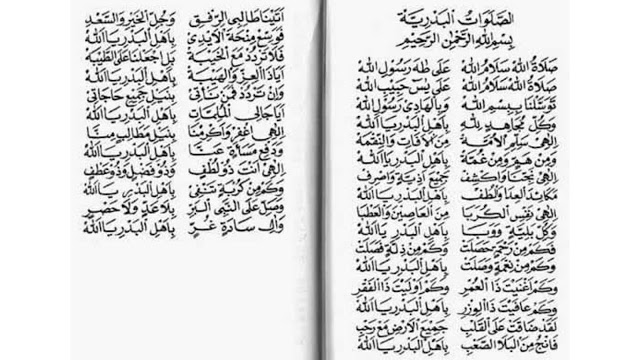 الصَّلَوَاتُ الْبَدْرِيَّة
بِسْمِ اللهِ الرَّحْمٰنِ الرَّحِيْمِ
صَلَاةُ اللهْ سَلَامُ اللهْ عَلَى طٰهَ رَسُوْلِ اللهْ
صَلَاةُ اللهْ سَلَامُ اللهْ عَلَى يٰسٓ حَبِيْبِ اللهْ
تَوَسَّلْنَا بِبِسْمِ اللهْ وَبِالْهَادِيْ رَسُوْلِ اللهْ
وَكُلِّ مُجَاهِدٍ لِلهْ بِاَهْلِ الْبَدْرِ يَا اَللهْ
اِلٰهِيْ سَلِّمِ الْاُمَّةْ مِنَ الْاٰفَاتِ وَالنِّقْمَةْ
وَمِنْ هَمٍّ وَمِنْ غُمَّةْ بِاَهْلِ الْبَدْرِ يَا اَللهْ
اِلٰهِيْ نَجِّنَا وَاكْشِفْ جَمِيْعَ اَذِيَّةٍ وَاصْرِفْ
مَكَائِدَ الْعِدَا وَالْطُفْ بِاَهْلِ الْبَدْرِ يَا اَللهْ
اِلٰهِيْ نَفِّسِ الْكُرَبَا مِنَ الْعَاصِيْنَ وَالْعَطْبَا
وَكُلِّ بَلِيَّةٍ وَوَبَا بِاَهْلِ الْبَدْرِ يَا اَللهْ
فَكَمْ مِنْ رَحْمَةٍ حَصَلَتْ وَكَمْ مِنْ ذِلَّةٍ فَصَلَتْ
وَكَمْ مِنْ نِعْمَةٍ وَصَلَتْ بِاَهْلِ الْبَدْرِ يَا اَللهْ
وَكَمْ اَغْنَيْتَ ذَا الْعُمْرِ وَكَمْ اَوْلَيْتَ ذَا الْفَقْرِ
وَكَمْ عَافَيْتَ ذَا الْوِزْرِ بِاَهْلِ الْبَدْرِ يَا اَللهْ
لَقَدْ ضَاقَتْ عَلَى الْقَلْبِ جَمِيْعُ الْاَرْضِ مَعْ رَحْبِ
فَانْجِ مِنَ الْبَلَا الصَّعْبِ بِاَهْلِ الْبَدْرِ يَا اَللهْ
اَتَيْنَا طَالِبِى الرِّفْقِ وَجُلِّ الْخَيْرِ وَالسَّعْدِ
فَوَسِّعْ مِنْحَةَ الْاَيْدِيْ بِاَهْلِ الْبَدْرِ يَا اَللهْ
فَلَا تَرْدُدْ مَعَ الْخَيْبَةْ بَلِ اجْعَلْنَا عَلَى الطَّيْبَةْ
اَيَا ذَا الْعِزِّ وَالْهَيْبَةْ بِاَهْلِ الْبَدْرِ يَا اَللهْ
وَاِنْ تَرْدُدْ فَمَنْ نَأْتِيْ بِنَيْلِ جَمِيْعِ حَاجَاتِيْ
اَيَا جَالِى الْمُلِمَّاتِ بِاَهْلِ الْبَدْرِ يَا اَللهْ
اِلٰهِى اغْفِرْ وَاَكْرِمْنَا بِنَيْلِ مَطَالِبٍ مِنَّا
وَدَفْعِ مَسَاءَةٍ عَنَّا بِاَهْلِ الْبَدْرِ يَا اَللهْ
اِلٰهِيْ اَنْتَ ذُوْ لُطْفٍ وَذُوْ فَضْلٍ وَذُوْ عَطْفٍ
وَكَمْ مِنْ كُرْبَةٍ تَنْفِيْ بِاَهْلِ الْبَدْرِ يَا اَللهْ
وَصَلِّ عَلَى النَّبِى الْبَرِّ بِلَا عَدٍّ وَلَا حَصْرِ
وَاٰلِ سَادَةٍ غُرِّ بِاَهْلِ الْبَدْرِ يَا اَللهْ